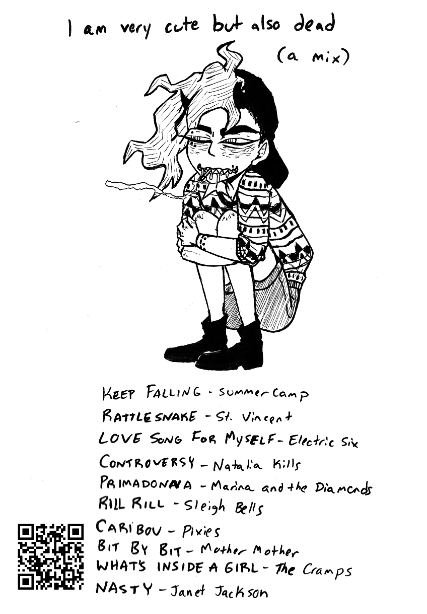 I am very cute but also dead
(a mix)
KEEP FALLING - Summer Camp
RATTLESNAKE - St. Vincent
LOVE SONG FOR MYSELF - Electric Six
CONTROVERSY - Natalia Kills
PRIMADONNA - Marina and the Diamonds
RILL RILL - Sleigh Bells
CARIBOU - Pixies
BIT BY BIT - Mother Mother
WHAT'S INSIDE A GIRL - The Cramps
NASTY - Janet Jackson